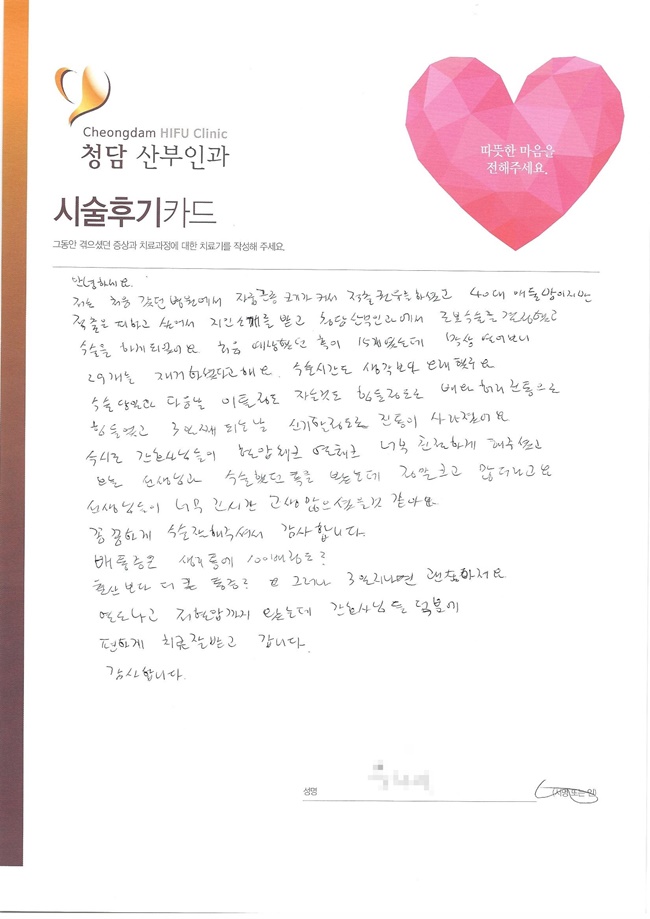 Cheongdam HIFU Clinic
청담 산부인과
따뜻한 마음을
전해주세요.
시술후기카드
그동안 겪으셨던 증상과 치료과정에 대한 치료기를 작성해 주세요.
안녕하세요.
저는 처음 갔던 병원에서 자궁근종 크기가 커서 적출 권유를 하셨고 40대 애둘맘이지만
적출은 피하고 싶어서 지인소개를 받고 청담산부인과에서 로봇수술을 결정했고
수술을 하게되었어요 처음 예상했던 혹이 15개였는데 막상 열어보니
29개를 제거하셨다고해요. 수술시간도 생각보다 오래했구요
수술 당일과 다음날 이틀정도 자는것도 힘들정도로 배와 허리 진통으로
힘들었고 3일째 되는날 신기할정도로 진통이 사라졌어요
수시로 간호사님들이 혈압체크 열체크 너무 친절하게 해주셨고
선생님과 수술했던 혹을 봤는데 정말 크고 많더라고요
선생님들이 너무 긴시간 고생 많으셨을것 같아요
꼼꼼하게 수술 잘해주셔서 감사합니다.
배통증은 생리통에 100배정도?
출산보다 더 큰 통증? 그러나 3일지나면 괜찮아져요
열도나고 저혈압까지 왔는데 간호사님들 덕분에
편하게 치료잘받고 갑니다.
감사합니다.
성명
(서명 또는 인)